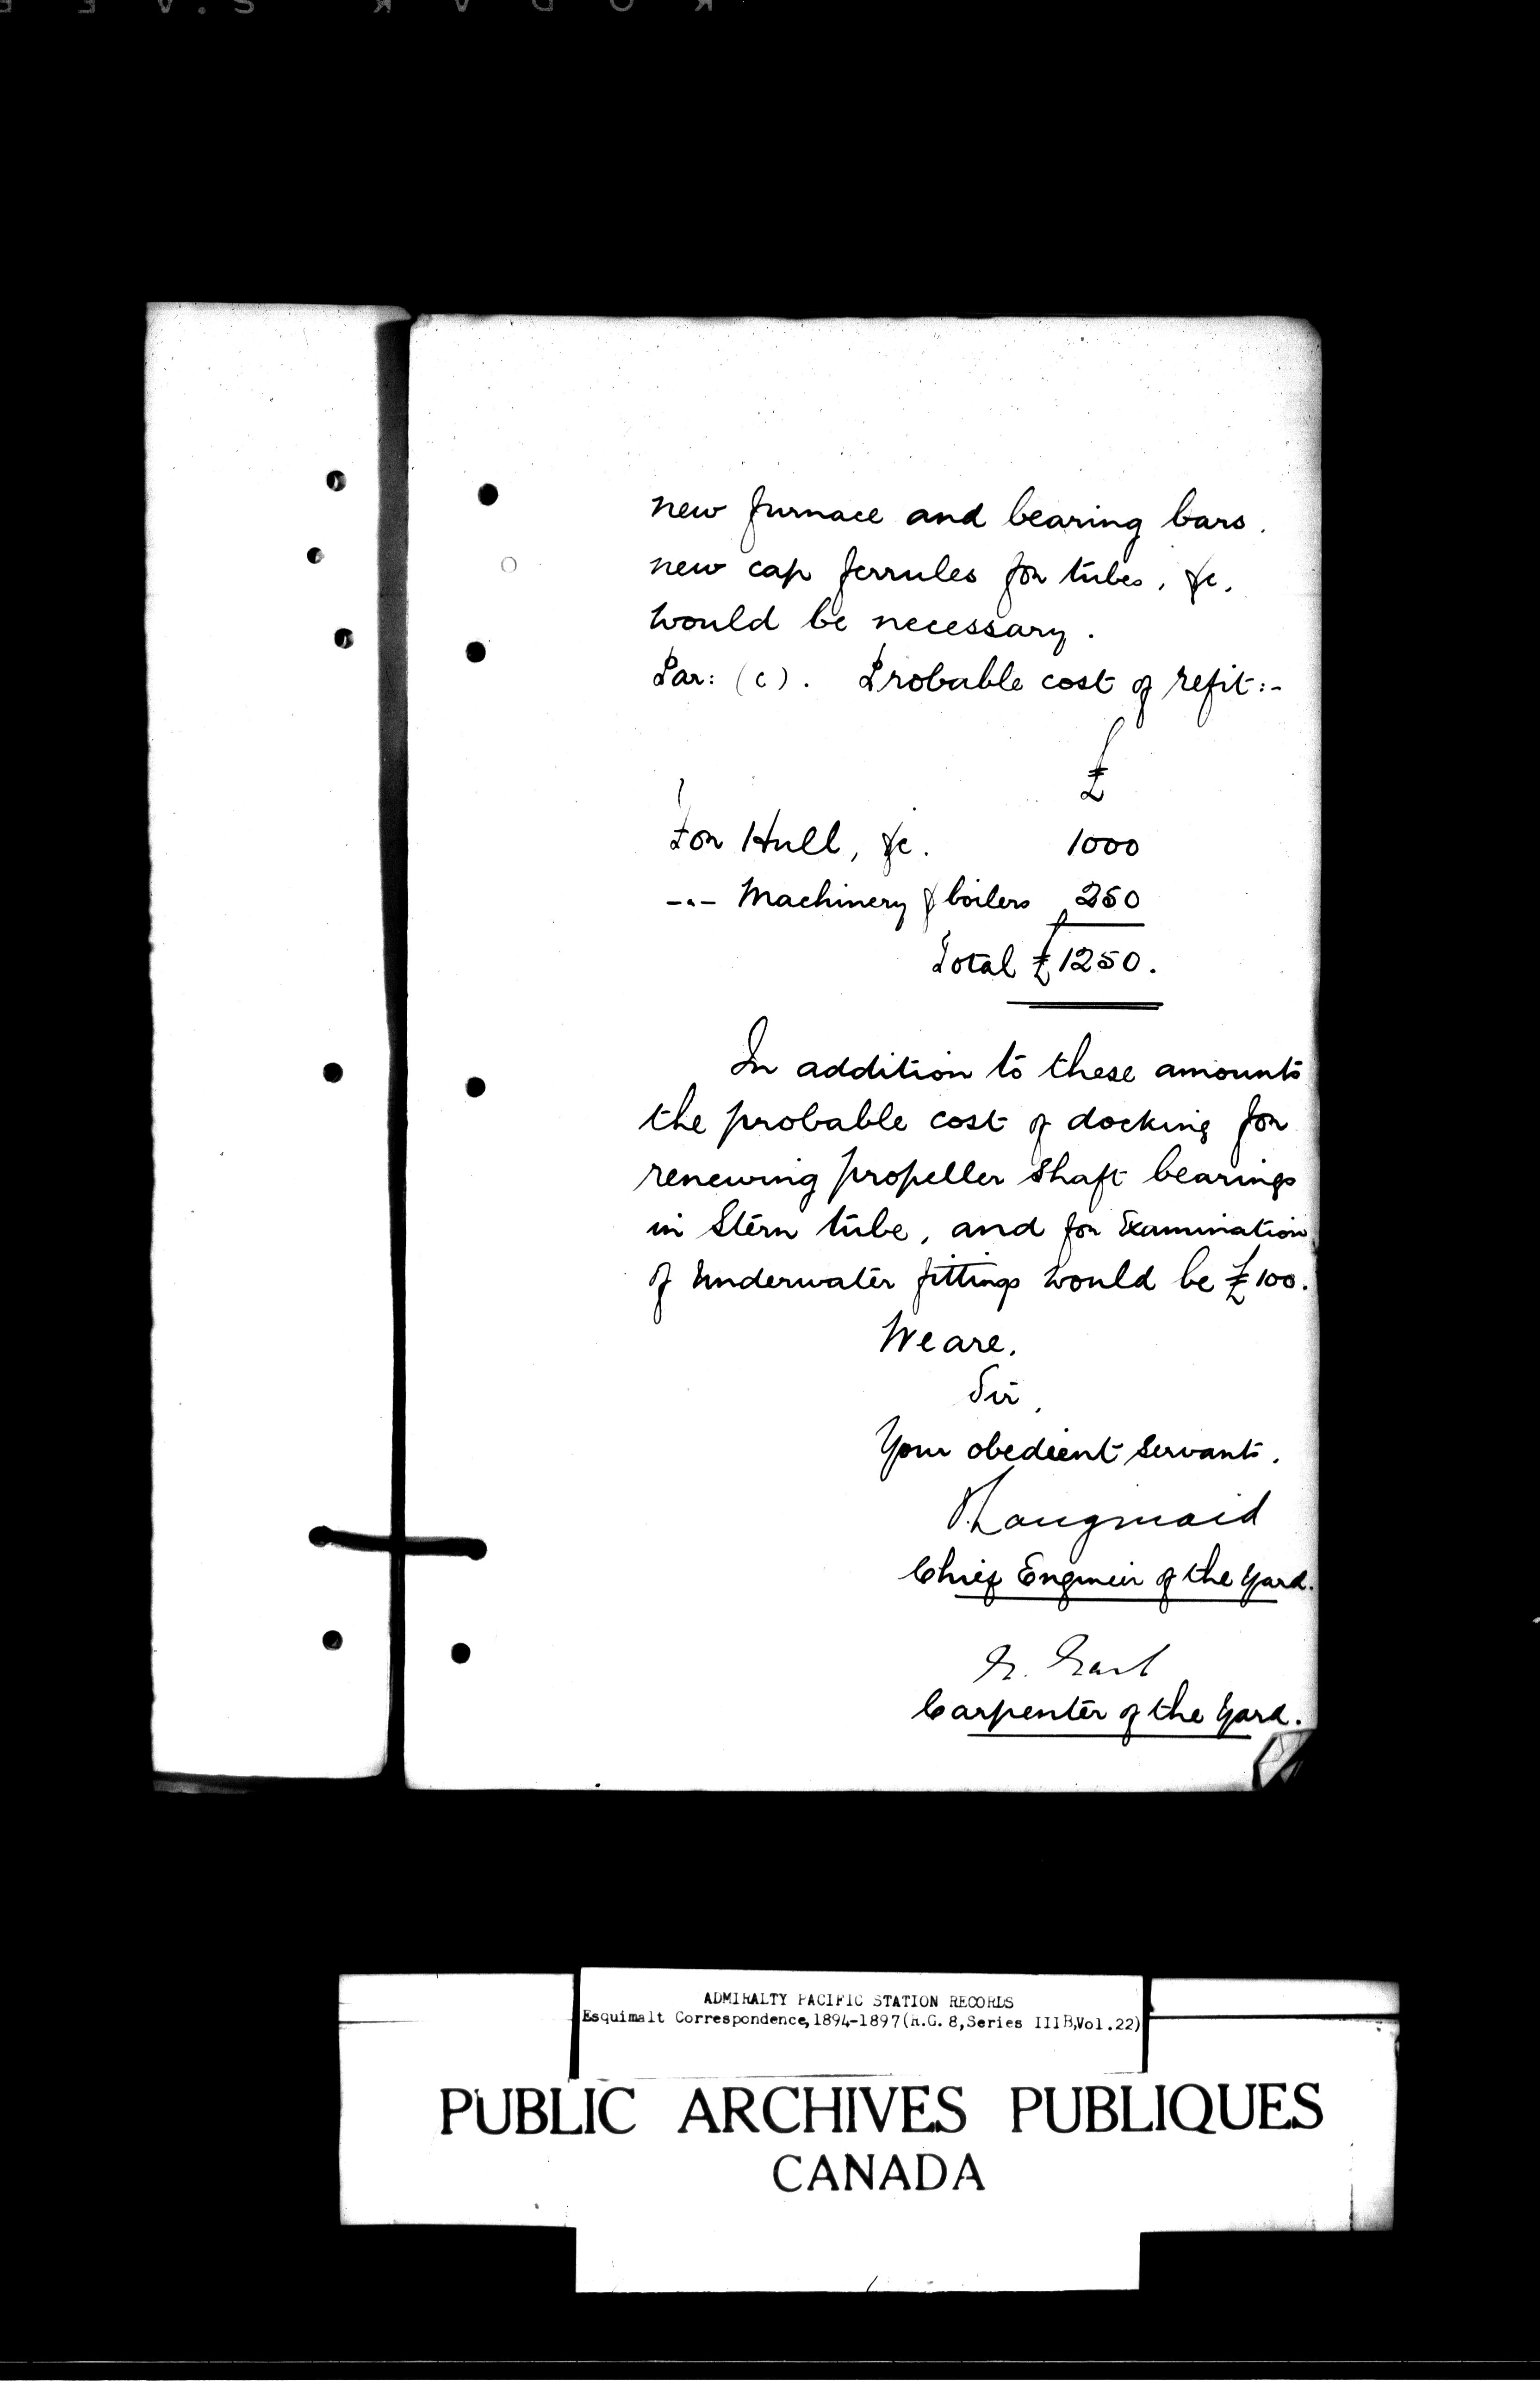 KODAK SAFE
new furnace and bearing bars.
new cap ferrules for tubes, &c.
would be necessary.
Par: (c). Probable cost of refit:-
£
For Hull, &c. 1000
-"- Machinery & boilers 250
Total £1250.
In addition to these amounts
the probable cost of docking for
renewing propeller shaft bearings
in Stern tube, and for Examination
of Underwater fittings would be £100.
We are,
Sir,
Your obedient servants.
Langmaid
Chief Engineer of the Yard.
Carpenter of the Yard.
ADMIRALTY PACIFIC STATION RECORDS
Esquimalt Correspondence,1894-1897(R.G. 8,Series IIIB,Vol.22)
PUBLIC ARCHIVES PUBLIQUES
CANADA